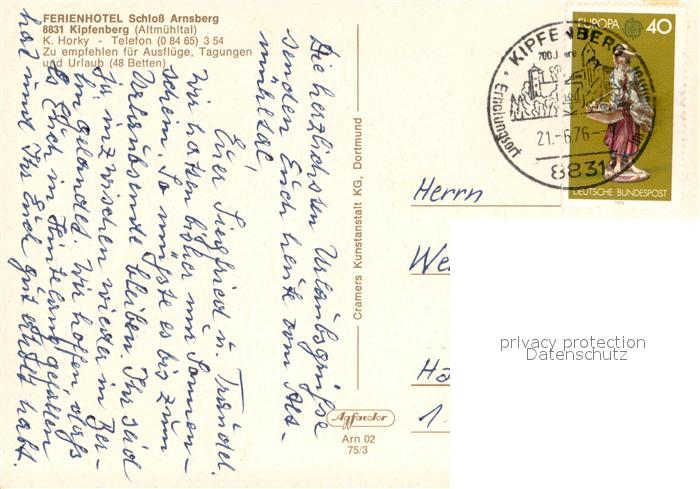 FERIENHOTEL Schloß Arnsberg
8831 Kipfenberg (Altmühltal)
K. Horky - Telefon (0 84 65) 3 54
Zu empfehlen für Ausflüge, Tagungen
und Urlaub (48 Betten)
Die herzlichsten Urlaubsgrüße
senden Euch heute vom Alt-
mühltal,
Euer Siegfried u. Traudel.
Wir hatten bisher nur Sonnen-
schein. So müßte es bis zum
Urlaubsende bleiben. Ihr seid
ja inzwischen wieder in Ber-
lin gelandet. Wir hoffen daß
es Euch in Hinterlang gefallen
hat und Ihr Euch gut erholt habt.
Cramers Kunstanstalt KG, Dortmund
Agfacolor
Arn 02
75/3
EUROPA 40
DEUTSCHE BUNDESPOST
1976
KIPFENBERG
700 Jahre
Erholungsort
im
21.-6.76-
8831
Herrn
We
Ha
1
privacy protection
Datenschutz